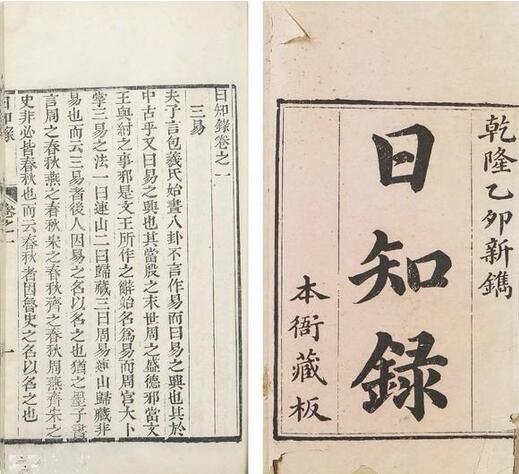 乾隆乙卯新鐫
日知録
本衙藏板
日知錄卷之一
三易
夫子言包羲氏始畫八卦不言作易而曰易之興也其於
中古乎又曰易之興也其當殷之末世周之盛德邪當文
王與紂之事邪是文王所作之辭始名爲易而周官大卜
掌三易之法一曰連山二曰歸藏三曰周易連山歸藏非
易也而云三易者後人因易之名以名之也猶之墨子書
言周之春秋燕之春秋宋之春秋齊之春秋周燕齊宋之
史非必皆春秋也而云春秋者因魯史之名以名之也
日知錄
卷之一
一